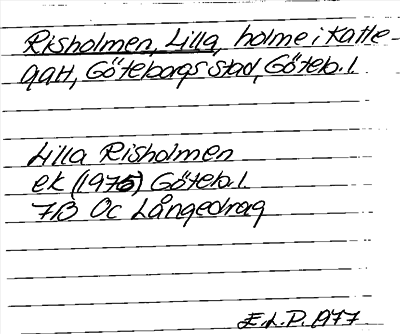 Risholmen, Lilla, holme i Katte-
gatt, Göteborgs stad, Göteb. l.
Lilla Risholmen
ek (1975) Göteb. l.
7B 0c Långedrag
E.L.P. 1977